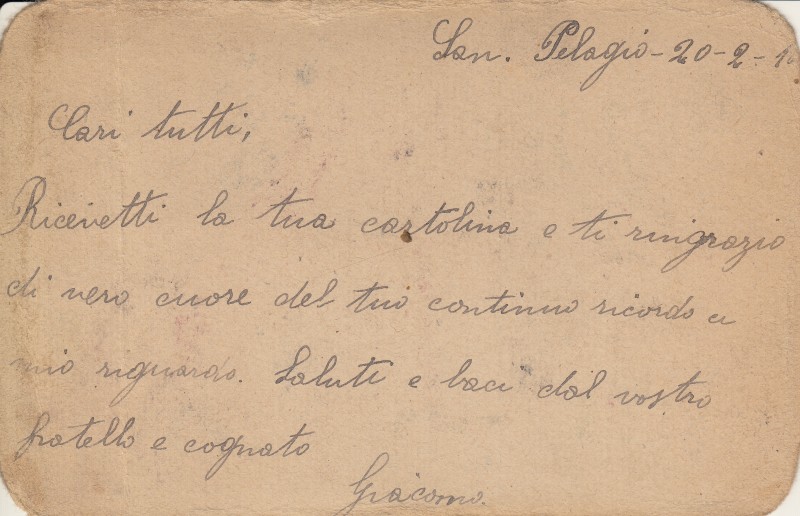 San. Pelagio - 20-2-
Cari tutti,
Ricevetti la tua cartolina e ti ringrazio
di vero cuore del tuo continuo ricordo a
mio riguardo. Saluti e baci dal vostro
fratello e cognato
Giacomo.